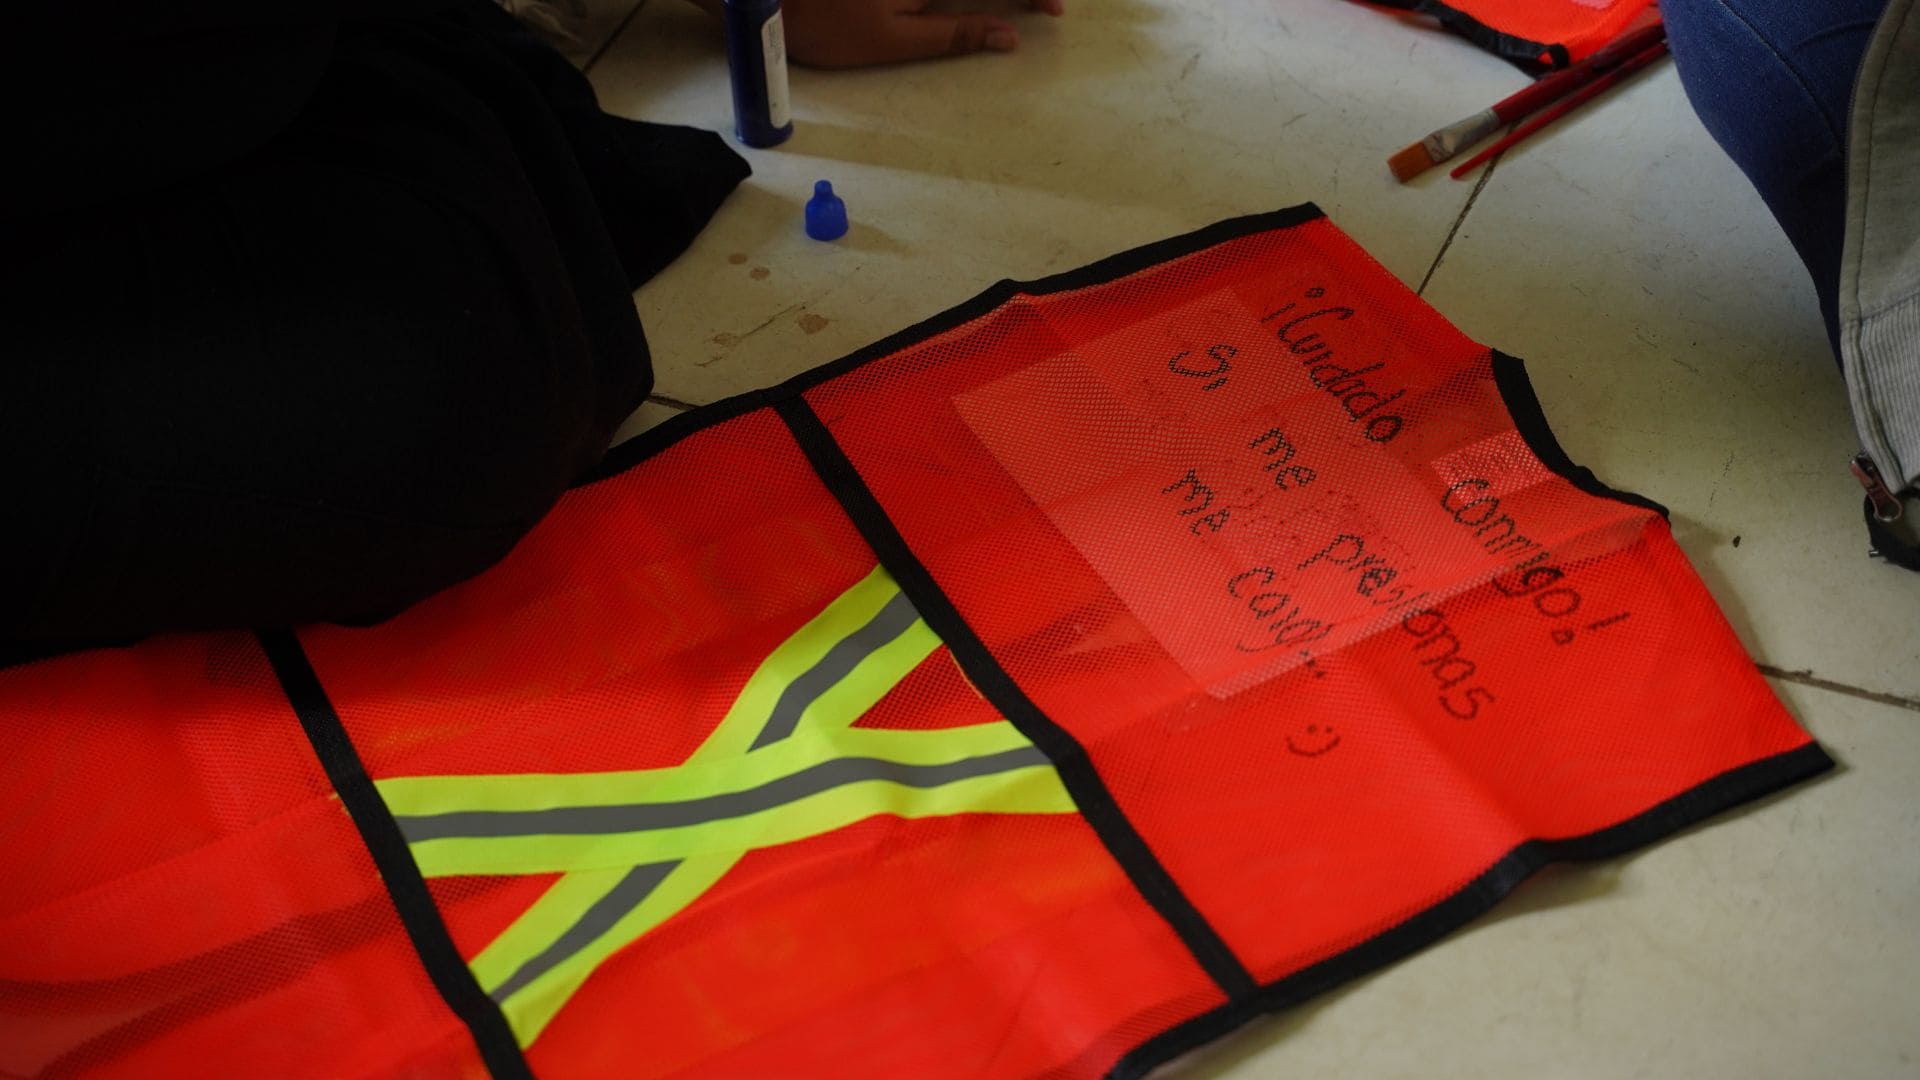 ¡Cuidado conmigo!
Si me presionas
me caigo...
:)